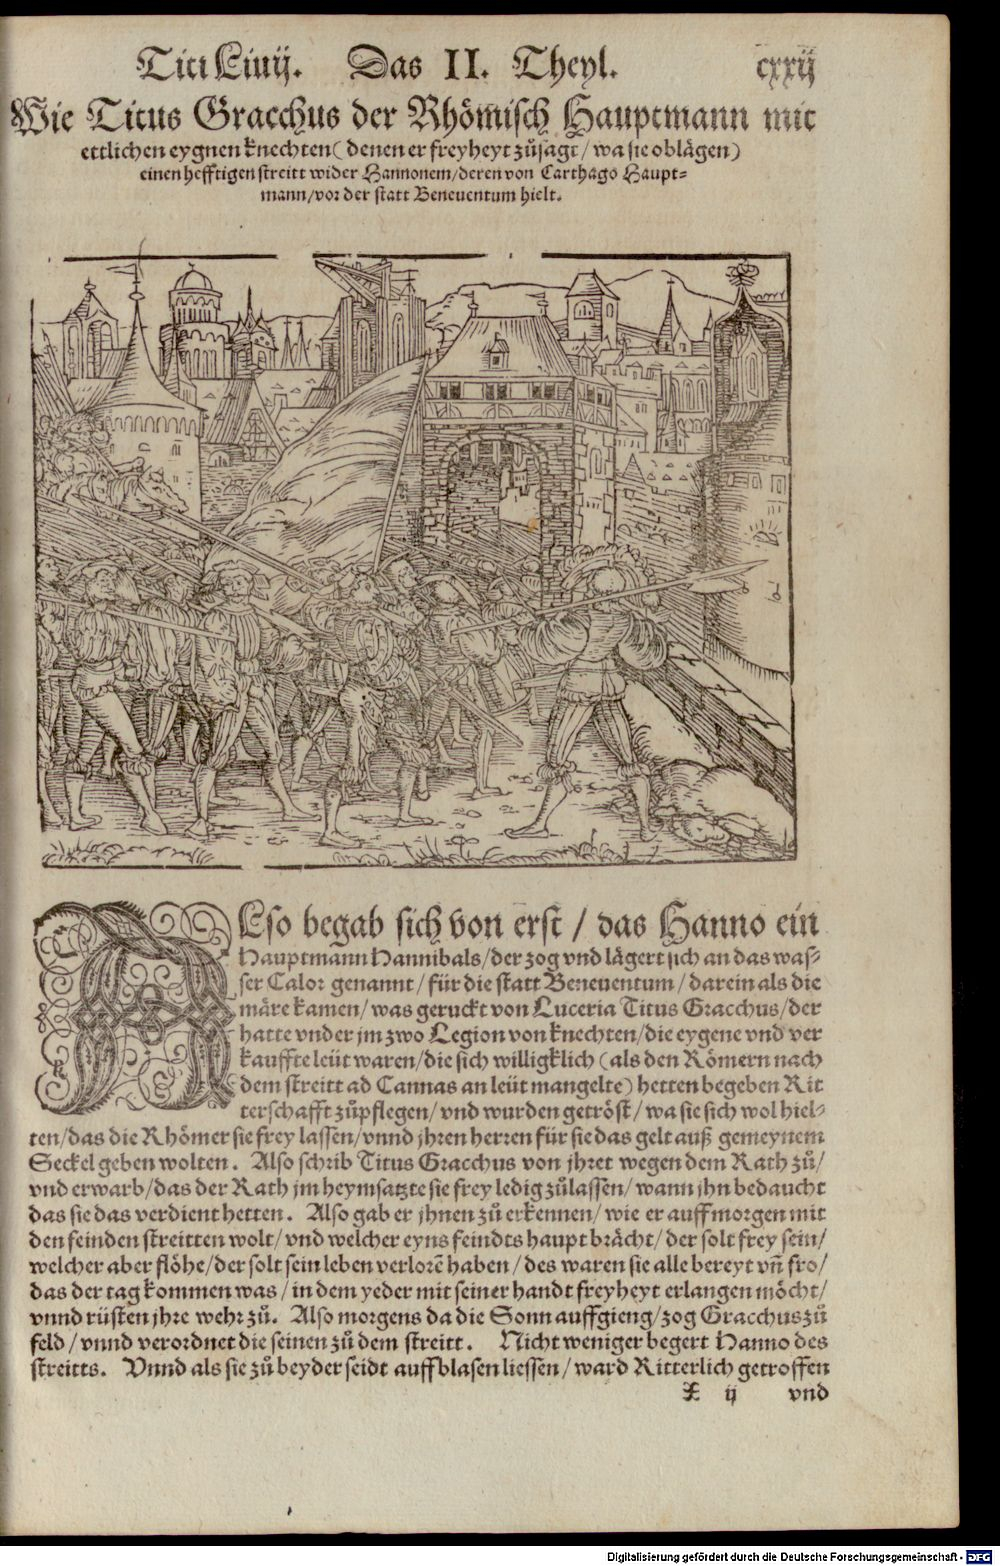 Titi Liuij. Das II. Theyl. cxxij
Wie Titus Gracchus der Rhömisch Hauptmann mit
ettlichen eygnen knechten (denen er freyheyt zůsagt / wa sie oblägen)
einen hefftigen streitt wider Hannonem / deren von Carthago Haupt=
mann / vor der statt Beneuentum hielt.
ALso begab sich von erst / das Hanno ein
Hauptmann Hannibals / der zog vnd lägert sich an das was=
ser Calor genannt / für die statt Beneuentum / darein als die
märe kamen / was geruckt von Luceria Titus Gracchus / der
hatte vnder jm zwo Legion von knechten / die eygene vnd ver
kauffte leüt waren / die sich willigklich (als den Römern nach
dem streitt ad Cannas an leüt mangelte) hetten begeben Rit
terschafft zůpflegen / vnd wurden getröst / wa sie sich wol hiel=
ten / das die Rhömer sie frey lassen / vnnd jhren herren für sie das gelt auß gemeynem
Seckel geben wolten. Also schrib Titus Gracchus von jhret wegen dem Rath zů /
vnd erwarb / das der Rath jm heymsatzte sie frey ledig zůlassen / wann jhn bedaucht
das sie das verdient hetten. Also gab er jhnen zů erkennen / wie er auff morgen mit
den feinden streitten wolt / vnd welcher eyns feindts haupt brächt / der solt frey sein /
welcher aber flöhe / der solt sein leben verlorē haben / des waren sie alle bereyt vñ fro /
das der tag kommen was / in dem yeder mit seiner handt freyheyt erlangen möcht /
vnnd rüsten jhre wehr zů. Also morgens da die Sonn auffgieng / zog Gracchus zů
feld / vnnd verordnet die seinen zů dem streitt. Nicht weniger begert Hanno des
streitts. Vnnd als sie zů beyder seidt auffblasen liessen / ward Ritterlich getroffen
X ij vnd
Digitalisierung gefördert durch die Deutsche Forschungsgemeinschaft - DFG